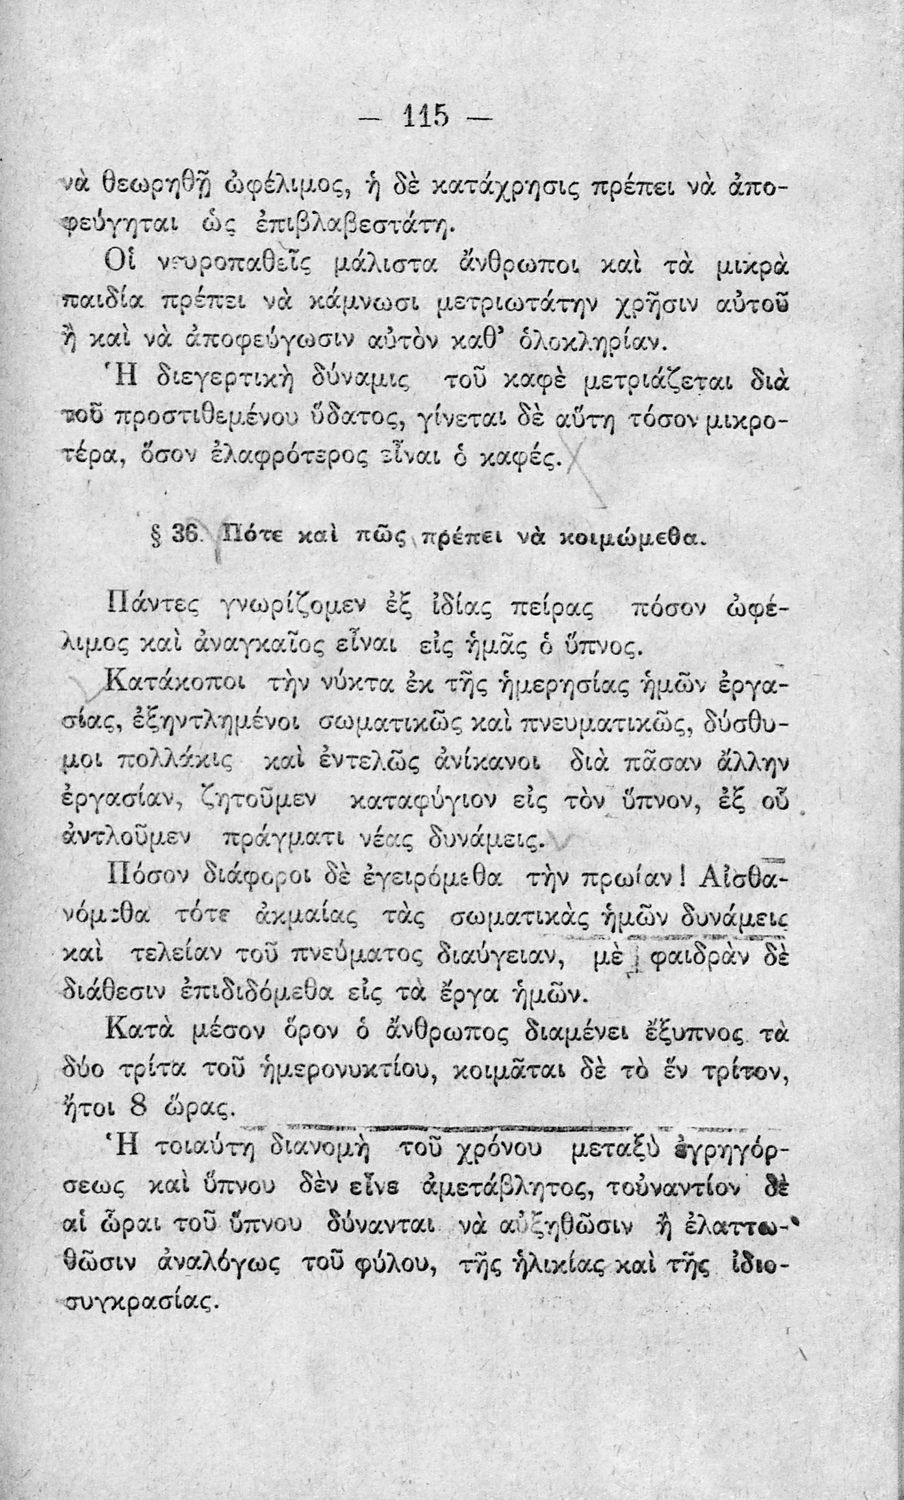 — 115 —
νὰ θεωρηθῇ ὠφέλιμος, ἡ δὲ κατάχρησις πρέπει νὰ ἀπο-
φεύγηται ὡς ἐπιβλαβεστάτη.
Οἱ νευροπαθεῖς μάλιστα ἄνθρωποι καὶ τὰ μικρὰ
παιδία πρέπει νὰ κάμνωσι μετριωτάτην χρῆσιν αὐτοῦ
ἢ καὶ νὰ ἀποφεύγωσιν αὐτὸν καθ’ ὁλοκληρίαν.
Ἡ διεγερτικὴ δύναμις τοῦ καφὲ μετριάζεται διὰ
τοῦ προστιθεμένου ὕδατος, γίνεται δὲ αὕτη τόσον μικρο-
τέρα, ὅσον ἐλαφρότερος εἶναι ὁ καφές.
§ 36. Πότε καὶ πῶς πρέπει νὰ κοιμώμεθα.
Πάντες γνωρίζομεν ἐξ ἰδίας πείρας πόσον ὠφέ-
λιμος καὶ ἀναγκαῖος εἶναι εἰς ἡμᾶς ὁ ὕπνος.
Κατάκοποι τὴν νύκτα ἐκ τῆς ἡμερησίας ἡμῶν ἐργα-
σίας, ἐξηντλημένοι σωματικῶς καὶ πνευματικῶς, δύσθυ-
μοι πολλάκις καὶ ἐντελῶς ἀνίκανοι διὰ πᾶσαν ἄλλην
ἐργασίαν, ζητοῦμεν καταφύγιον εἰς τὸν ὕπνον, ἐξ οὗ
ἀντλοῦμεν πράγματι νέας δυνάμεις.
Πόσον διάφοροι δὲ ἐγειρόμεθα τὴν πρωίαν! Αἰσθα-
νόμεθα τότε ἀκμαίας τὰς σωματικὰς ἡμῶν δυνάμεις
καὶ τελείαν τοῦ πνεύματος διαύγειαν, μὲ φαιδρὰν δὲ
διάθεσιν ἐπιδιδόμεθα εἰς τὰ ἔργα ἡμῶν.
Κατὰ μέσον ὅρον ὁ ἄνθρωπος διαμένει ἔξυπνος τὰ
δύο τρίτα τοῦ ἡμερονυκτίου, κοιμᾶται δὲ τὸ ἕν τρίτον,
ἤτοι 8 ὥρας.
Ἡ τοιαύτη διανομὴ τοῦ χρόνου μεταξὺ ἐγρηγόρ-
σεως καὶ ὕπνου δὲν εἶνε ἀμετάβλητος, τοὐναντίον δὲ
αἱ ὧραι τοῦ ὕπνου δύνανται νὰ αὐξηθῶσιν ἢ ἐλαττω-
θῶσιν ἀναλόγως τοῦ φύλου, τῆς ἡλικίας καὶ τῆς ἰδιο-
συγκρασίας.